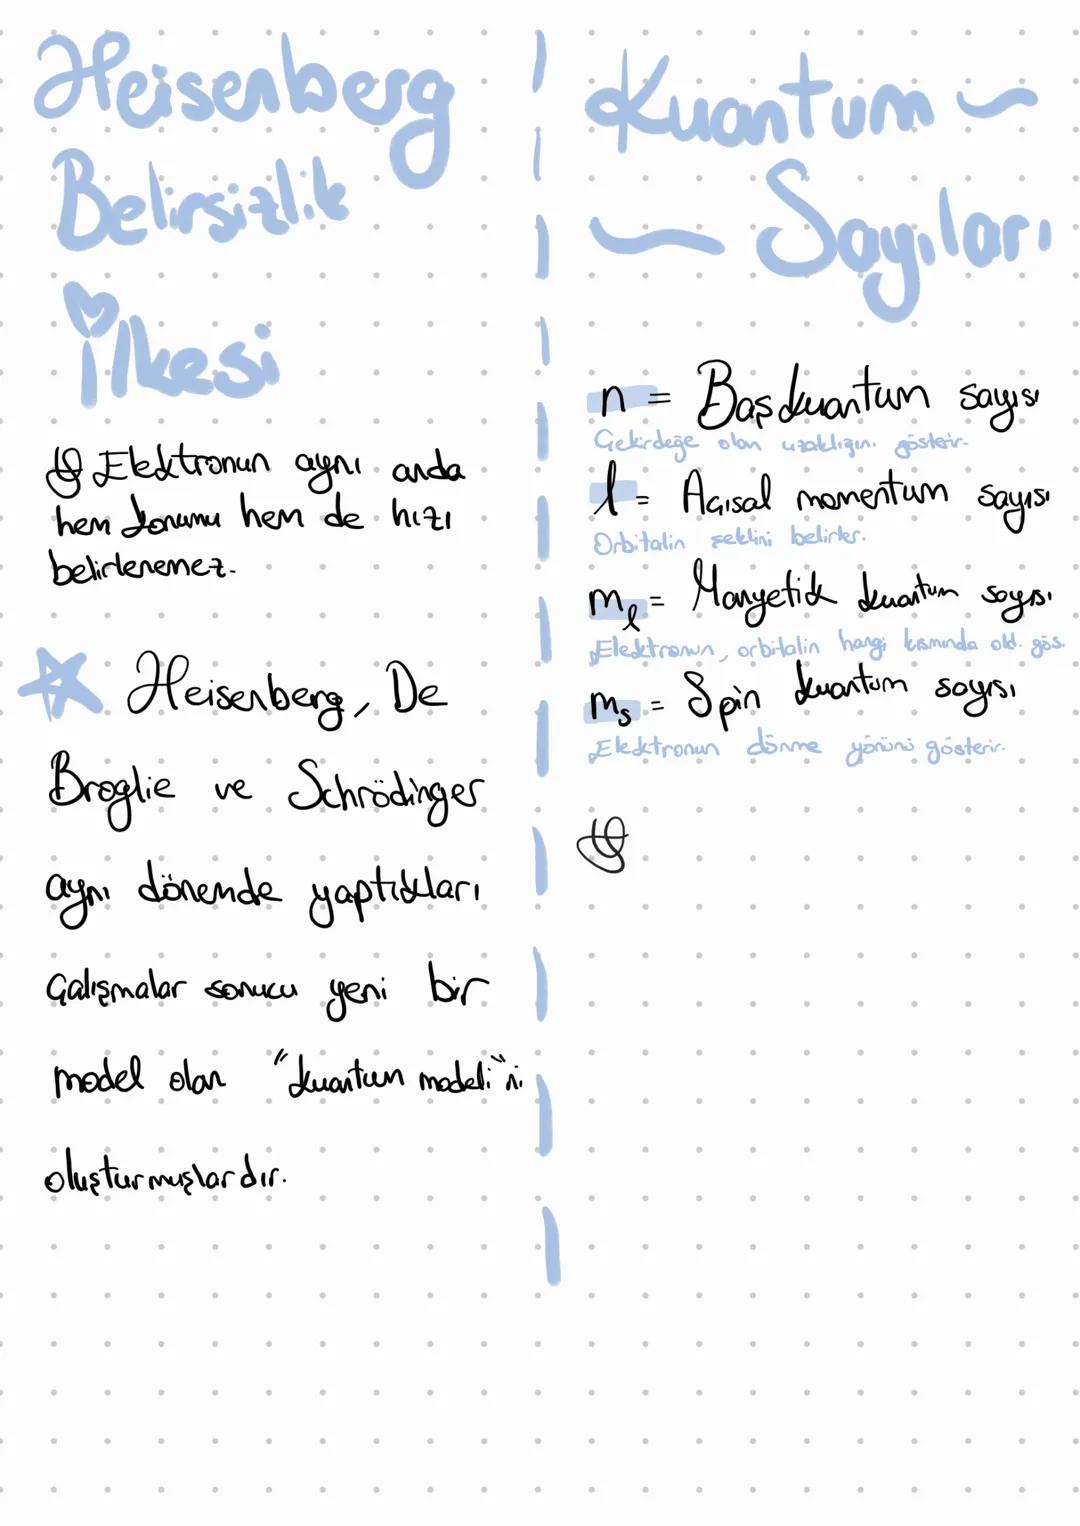 Heisenberg
Belirsizlik
İlkesi
Elektronun aynı anda
hem konumu hem de hızı
belirlenemez.
Heisenberg, De
Broglie ve Schrödinger
aynı dönemde yaptıkları
Çalışmalar sonucu yeni bir
model olan "kuantum modeli"ni
oluşturmuşlardır.
Kuantum
Sayıları
n = Baş kuantum sayısı
Çekirdeğe olan uzaklığını gösterir.
l = Açısal momentum sayısı
Orbitalin şeklini belirler.
mℓ = Manyetik kuantum sayısı
Elektronun, orbitalin hangi kısmında old. gös.
ms = Spin kuantum sayısı
Elektronun dönme yönünü gösterir.